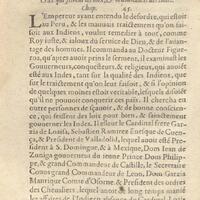 Chap. 45.
L'Empereur ayant entendu le desordre, qui estoit
au Peru, & les mauvais traictemens qu'on fai-
soit aux Indiens, voulut remedier à tout, comme
Roy juste, & jaloux du service de Dieu, & de l'avan-
tage des hommes. Il commanda au Docteur Figue-
roa, qu'apres avoir prins le serment, il examinast
les Gouverneurs, & religieux, qui avoyent esté
és Indes, tant sur la qualité des Indiens, que
sur le traictement qu'on leur faisoit, & sur l'opinion
de quelques moynes
qui disoyent qu'on ne
pouvoit conquerir ces pays là. Il chercha en
outre personnes de sçavoir, & de bonne conscien-
ce, qui fissent des loix pour bien, & sainctement
gouverner les Indes. Il esleut le Cardinal frere Gar-
cia de Loaisa, Sebastien Ramirez Evesque de Cuen-
ça, & President de Valladolid, lequel avoit esté Pre-
sident à S. Domingue, & à Mexique, Dom Jean de
Zuniga gouverneur du jeune Prince Dom Philip-
pe, & grand Commandeur de Castille, le Secretaire
Covos grand Commandeur de Leon, Dom Garzia
Manrique Comte d'Osorne, & President des ordres
des Chevaliers, lequel avoit long temps manié
les affaires de l'Indie en absence du Cardinal Loaisa,